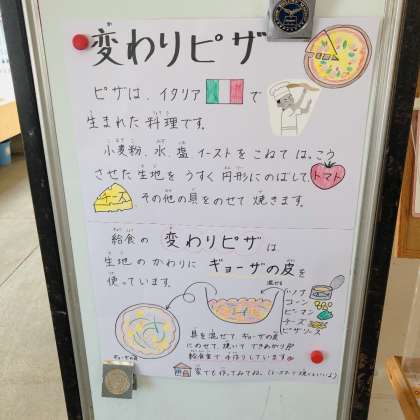 変わりピザ
ピザは、イタリアで
生まれた料理です。
小麦粉、水、塩 イーストを こねて はっこう
させた 生地を うすく 円形にのばして、トマト
チーズ その他の具をのせて 焼きます。
給食の 変わりピザは
生地の かわりに ギョーザの皮を
使っています。
混ぜる
ツナ
コーン
ピーマン
チーズ
ピザソース
ギョーザの皮
具を混ぜて ギョーザの皮
にのせて、焼いて できあがり
給食室で 手作りしています
家でも 作ってみてね。